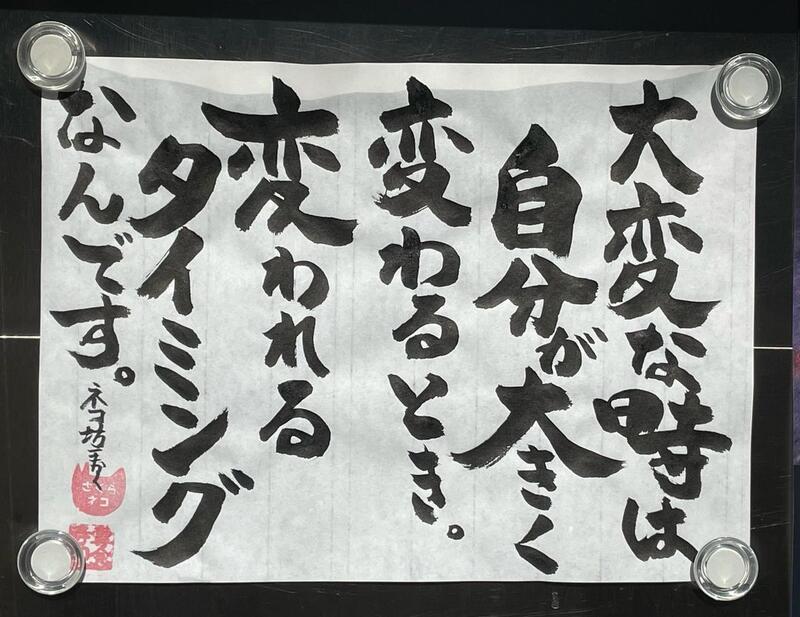 大変な時は
自分が大きく
変わるとき。
変われる
タイミング
なんです。
ネコ坊主かく
さくら
ネコ